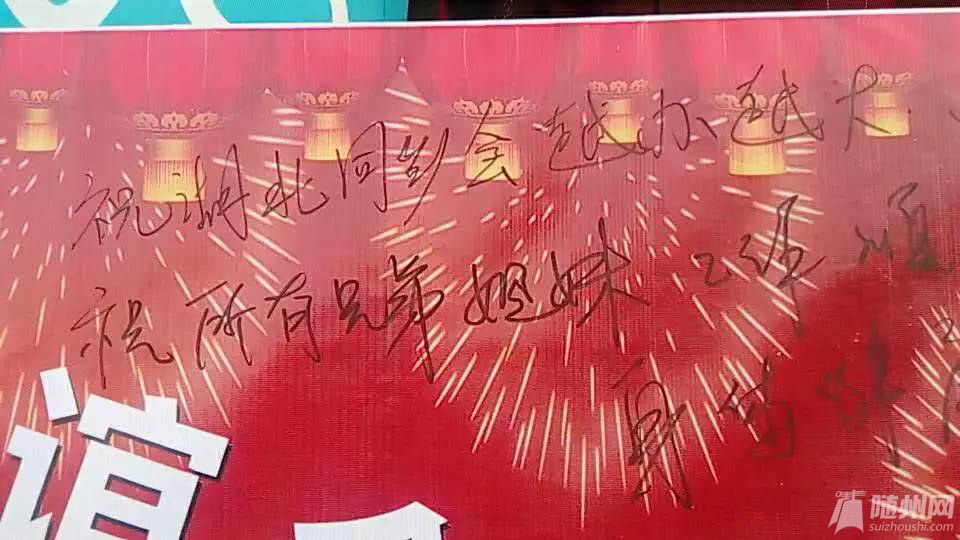 祝湖北同乡会越办越大
祝所有兄弟姐妹工作顺
身体健
谊
随州网
suizhoushi.com